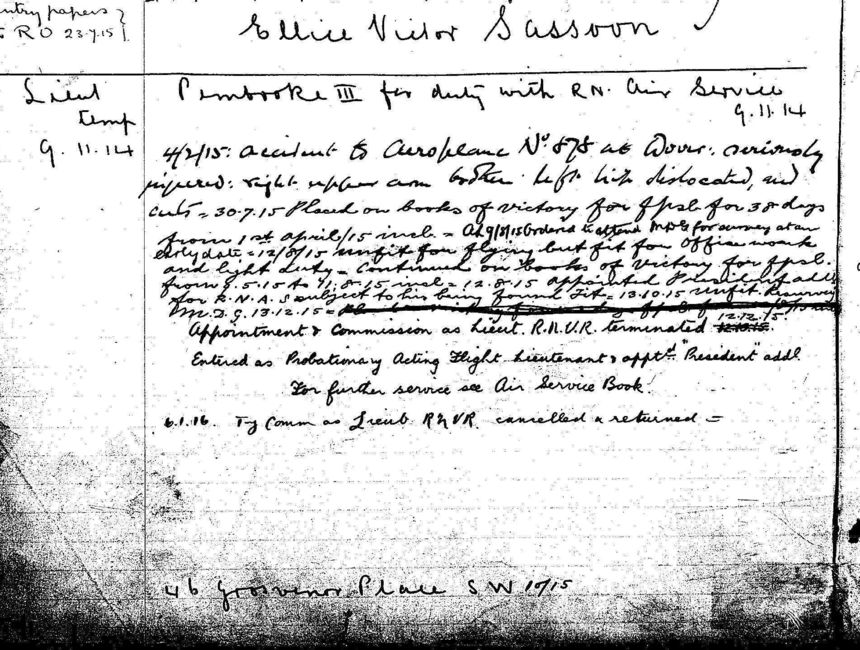 entry papers
RO 23.7.15
Ellice Victor Sassoon
Lieut
temp
9.11.14
Pembroke III for duty with R.N. Air Service
9.11.14
4/2/15: accident to Aeroplane No 878 at Dover: seriously
injured: right upper arm broken left hip dislocated, and
cuts = 30.7.15 Placed on books of Victory for f psl for 38 days
from 1st April/15 incl = At 9/8/15 Ordered to attend M.D.G for survey at an
early date = 12/8/15 unfit for flying but fit for Office work
and light duty = Continued on books of Victory for f psl.
from 9.5.15 to 11.8.15 incl = 12.8.15 appointed President addl
for R.N.A.S subject to his being found fit = 13.10.15 unfit
M.D.G. 13.12.15 =
12.12.15
Appointment & Commission as Lieut. R.N.V.R. terminated
Entered as Probationary Acting Flight Lieutenant & apptd "President" addl
For further service see Air Service Book.
6.1.16. Ty Comm as Lieut RNVR cancelled & returned =
46 Grosvenor Place SW 10/15